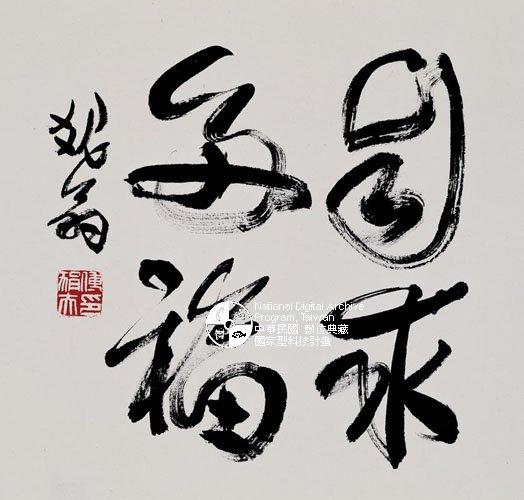 自求
多福
狷翁
National Digital Archive
Program, Taiwan
中華民國 數位典藏
國家型科技計畫